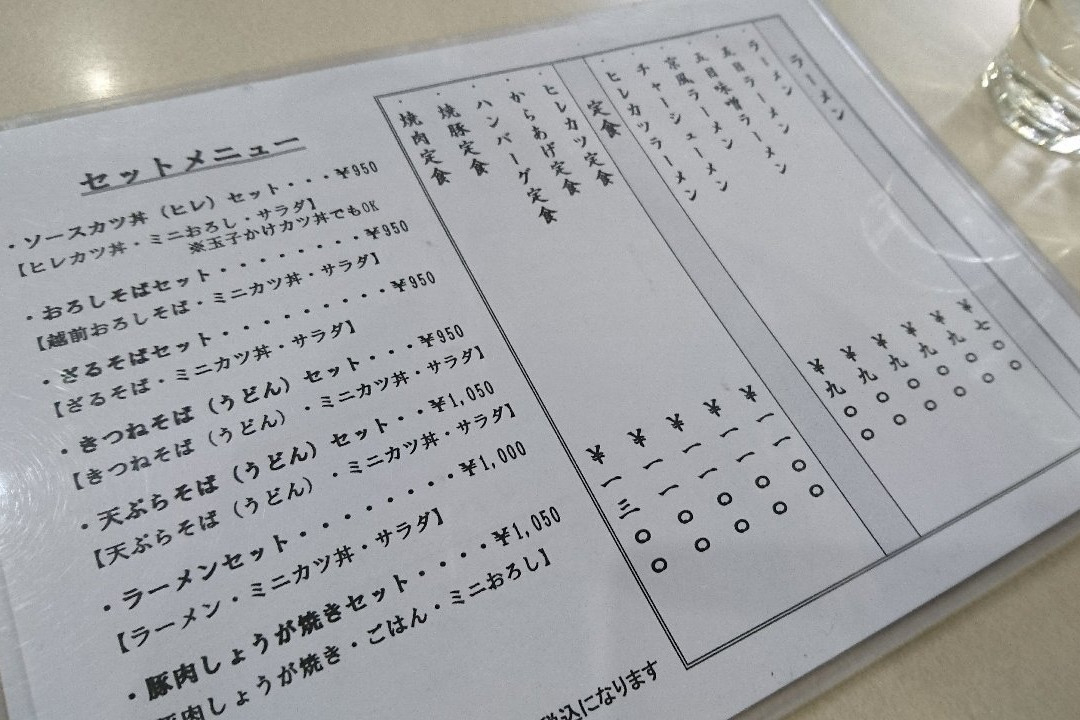 セットメニュー
・ソースカツ丼（ヒレ）セット・・・¥950
【ヒレカツ丼・ミニおろし・サラダ】
※玉子かけカツ丼でもOK
・おろしそばセット・・・・・・・・¥950
【越前おろしそば・ミニカツ丼・サラダ】
・ざるそばセット・・・・・・・・・¥950
【ざるそば・ミニカツ丼・サラダ】
・きつねそば（うどん）セット・・・¥950
【きつねそば（うどん）・ミニカツ丼・サラダ】
・天ぷらそば（うどん）セット・・¥1,050
【天ぷらそば（うどん）・ミニカツ丼・サラダ】
・ラーメンセット・・・・・・・・¥1,000
【ラーメン・ミニカツ丼・サラダ】
・豚肉しょうが焼きセット・・・・¥1,050
豚肉しょうが焼き・ごはん・ミニおろし】
税込になります
ラーメン
・ラーメン ¥七〇〇
・五目ラーメン ¥九〇〇
・五目味噌ラーメン ¥九〇〇
・京風ラーメン ¥九〇〇
・チャーシューメン ¥九〇〇
・ヒレカツラーメン ¥九〇〇
定食
・ヒレカツ定食 ¥一一〇〇
・からあげ定食 ¥一一〇〇
・ハンバーグ定食 ¥一一〇〇
・焼豚定食 ¥一一〇〇
・焼肉定食 ¥一三〇〇